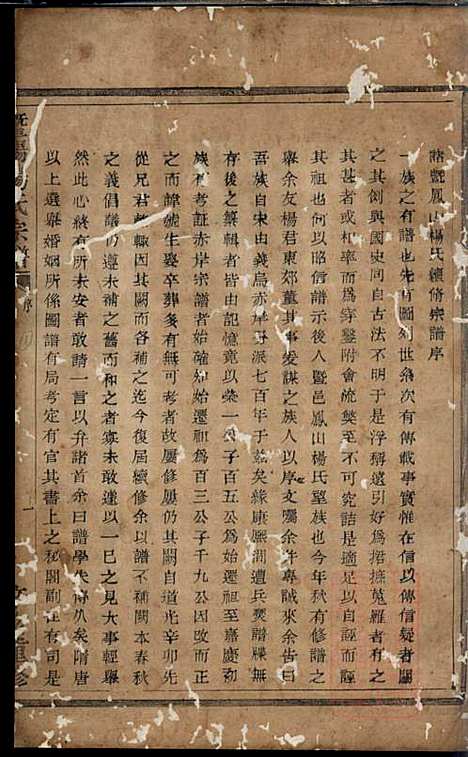 諸暨鳳山楊氏續修宗譜序
一族之有譜也先有圖列世系次有傳載事實惟在信以傳信疑者闕
之其例與國史同自古法不明于是浮稱遠引好為捃摭蒐羅者有之
其甚者或杜率而為穿鑿附會流獘至不可究詰是適足以自誣而誣
其祖也何以昭信譜示後人暨邑鳳山楊氏望族也今年秋有修譜之
舉余友楊君東郊董其事爰謀之族人以序文囑余并專誠來余告曰
吾族自宋由義烏赤岸分派七百年于茲矣緣康熙間遭兵燹譜牒無
存後之纂輯者皆由記憶竟以榮一公子百五公為始遷祖至嘉慶初
族有考証赤岸宗譜者始確知始遷祖為百三公子千九公因改而正
之而諱號生娶卒葬多有無可考者故屢修屢仍其闕自道光辛卯先
從兄君 因其闕而各補之迄今復屆續修余以譜不補闕本春秋
之義倡議仍遵未補之舊而和之者寡未敢遽以一己之見大事輕舉
然此心終有所未安者敢請一言以弁諸首余曰譜學失傳久矣隋唐
以上選舉婚姻所係圖譜有局考定有官其書上之秘閣副在有司是
暨陽 楊氏宗譜
序
一
重修